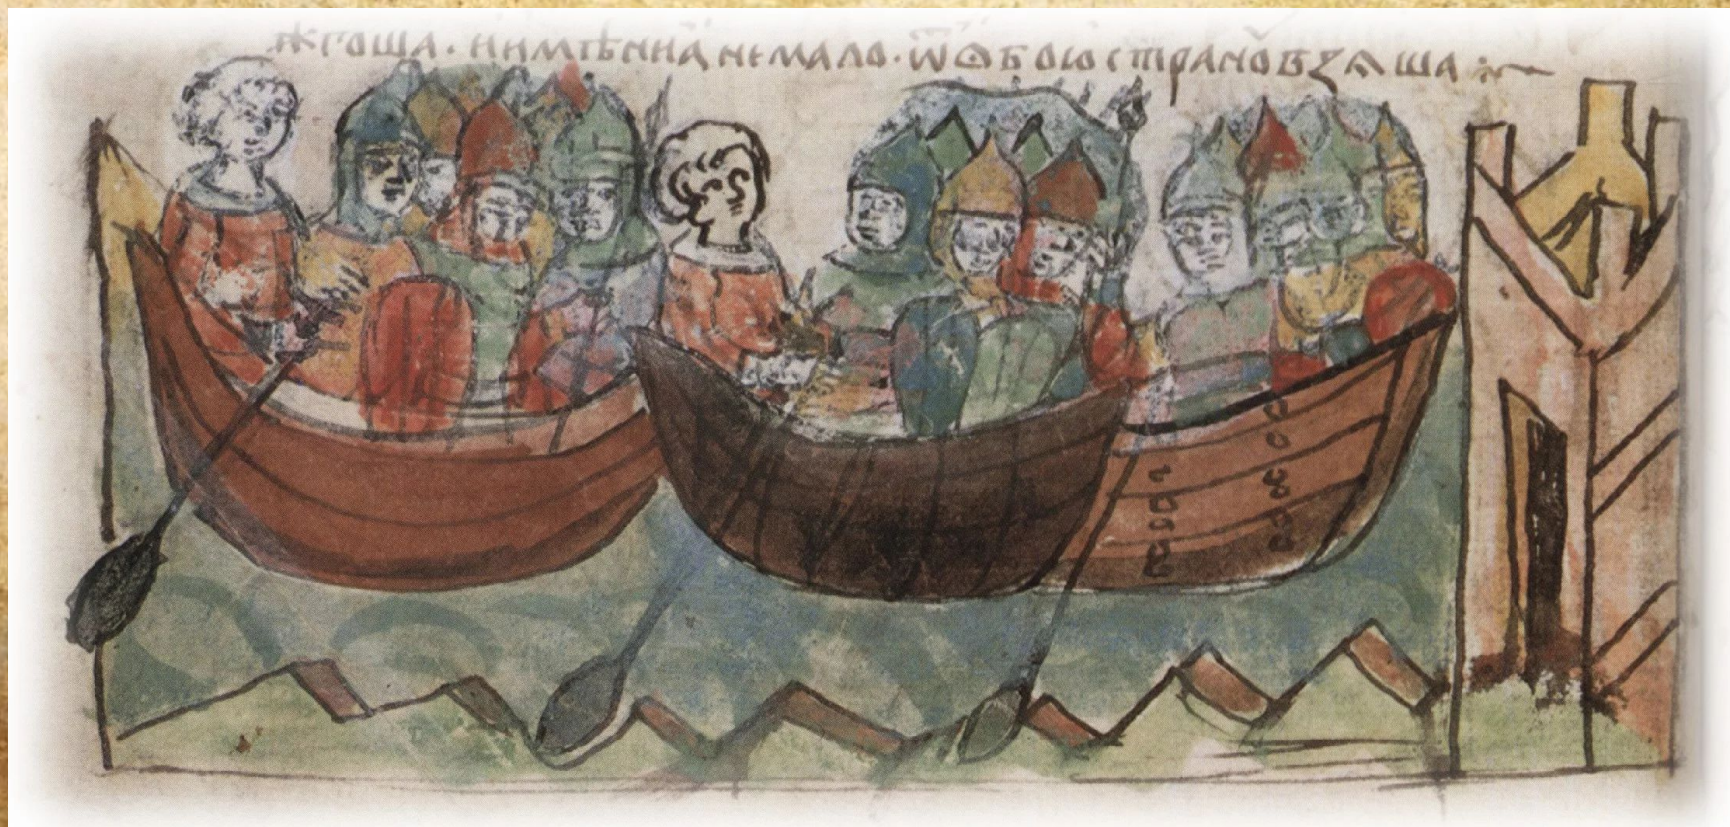 жгоша· и имѣниꙗ немало· ѿ ѡбою странꙋ взѧша